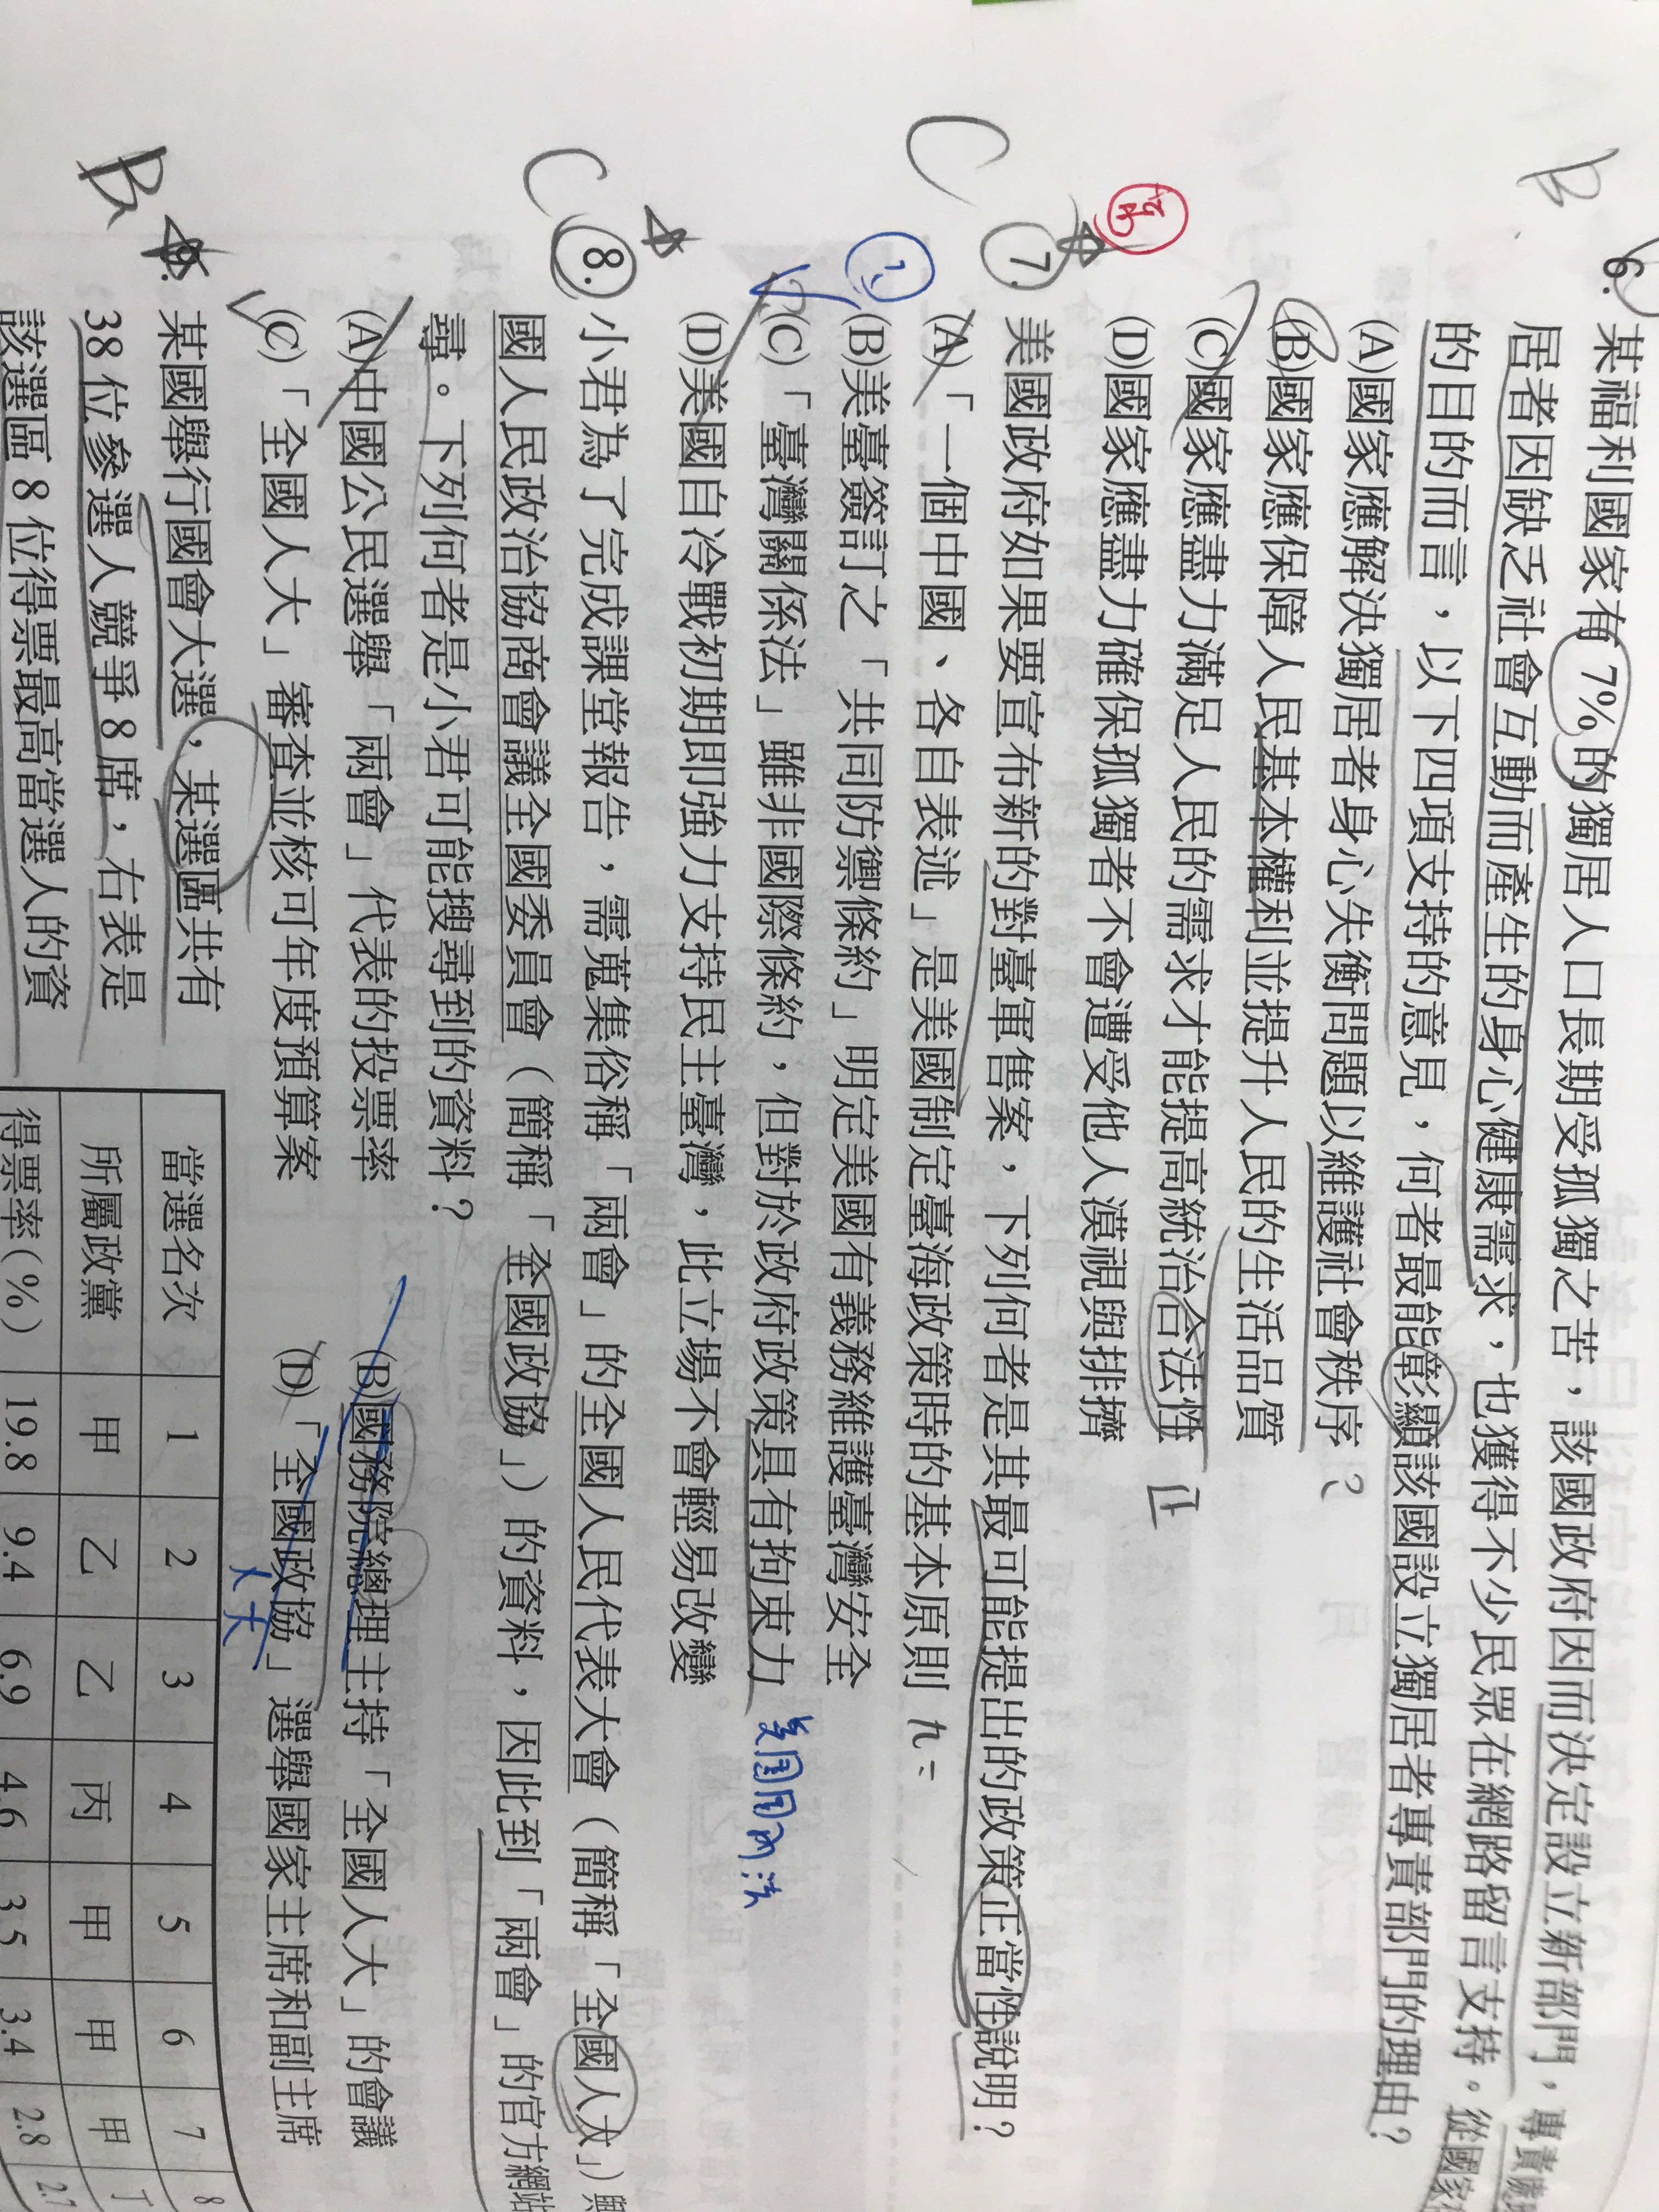 B
6. 某福利國家有7%的獨居人口長期受孤獨之苦，該國政府因而決定設立新部門，專責
居者因缺乏社會互動而產生的身心健康需求，也獲得不少民眾在網路留言支持。從國家
的目的而言，以下四項支持的意見，何者最能彰顯該國設立獨居者專責部門的理由？
(A)國家應解決獨居者身心失衡問題以維護社會秩序 ?
(B)國家應保障人民基本權利並提升人民的生活品質
(C)國家應盡力滿足人民的需求才能提高統治合法性 正
(D)國家應盡力確保孤獨者不會遭受他人漠視與排擠
C
7. 美國政府如果要宣布新的對臺軍售案，下列何者是其最可能提出的政策正當性說明？
(A)「一個中國、各自表述」是美國制定臺海政策時的基本原則
(B)美臺簽訂之「共同防禦條約」明定美國有義務維護臺灣安全
(C)「臺灣關係法」雖非國際條約，但對於政府政策具有拘束力 美国国內法
(D)美國自冷戰初期即強力支持民主臺灣，此立場不會輕易改變
C
8. 小君為了完成課堂報告，需蒐集俗稱「兩會」的全國人民代表大會（簡稱「全國人大」）與
國人民政治協商會議全國委員會（簡稱「全國政協」）的資料，因此到「兩會」的官方網站
尋。下列何者是小君可能搜尋到的資料？
(A)中國公民選舉「兩會」代表的投票率 (B)國務院總理主持「全國人大」的會議
(C)「全國人大」審查並核可年度預算案 (D)「全國政協」選舉國家主席和副主席
人大
B
9. 某國舉行國會大選，某選區共有
38位參選人競爭8席，右表是
該選區8位得票最高當選人的資
當選名次 1 2 3 4 5 6 7 8
所屬政黨 甲 乙 乙 丙 甲 甲 甲 丁
得票率(%) 19.8 9.4 6.9 4.6 3.5 3.4 2.8 2.7